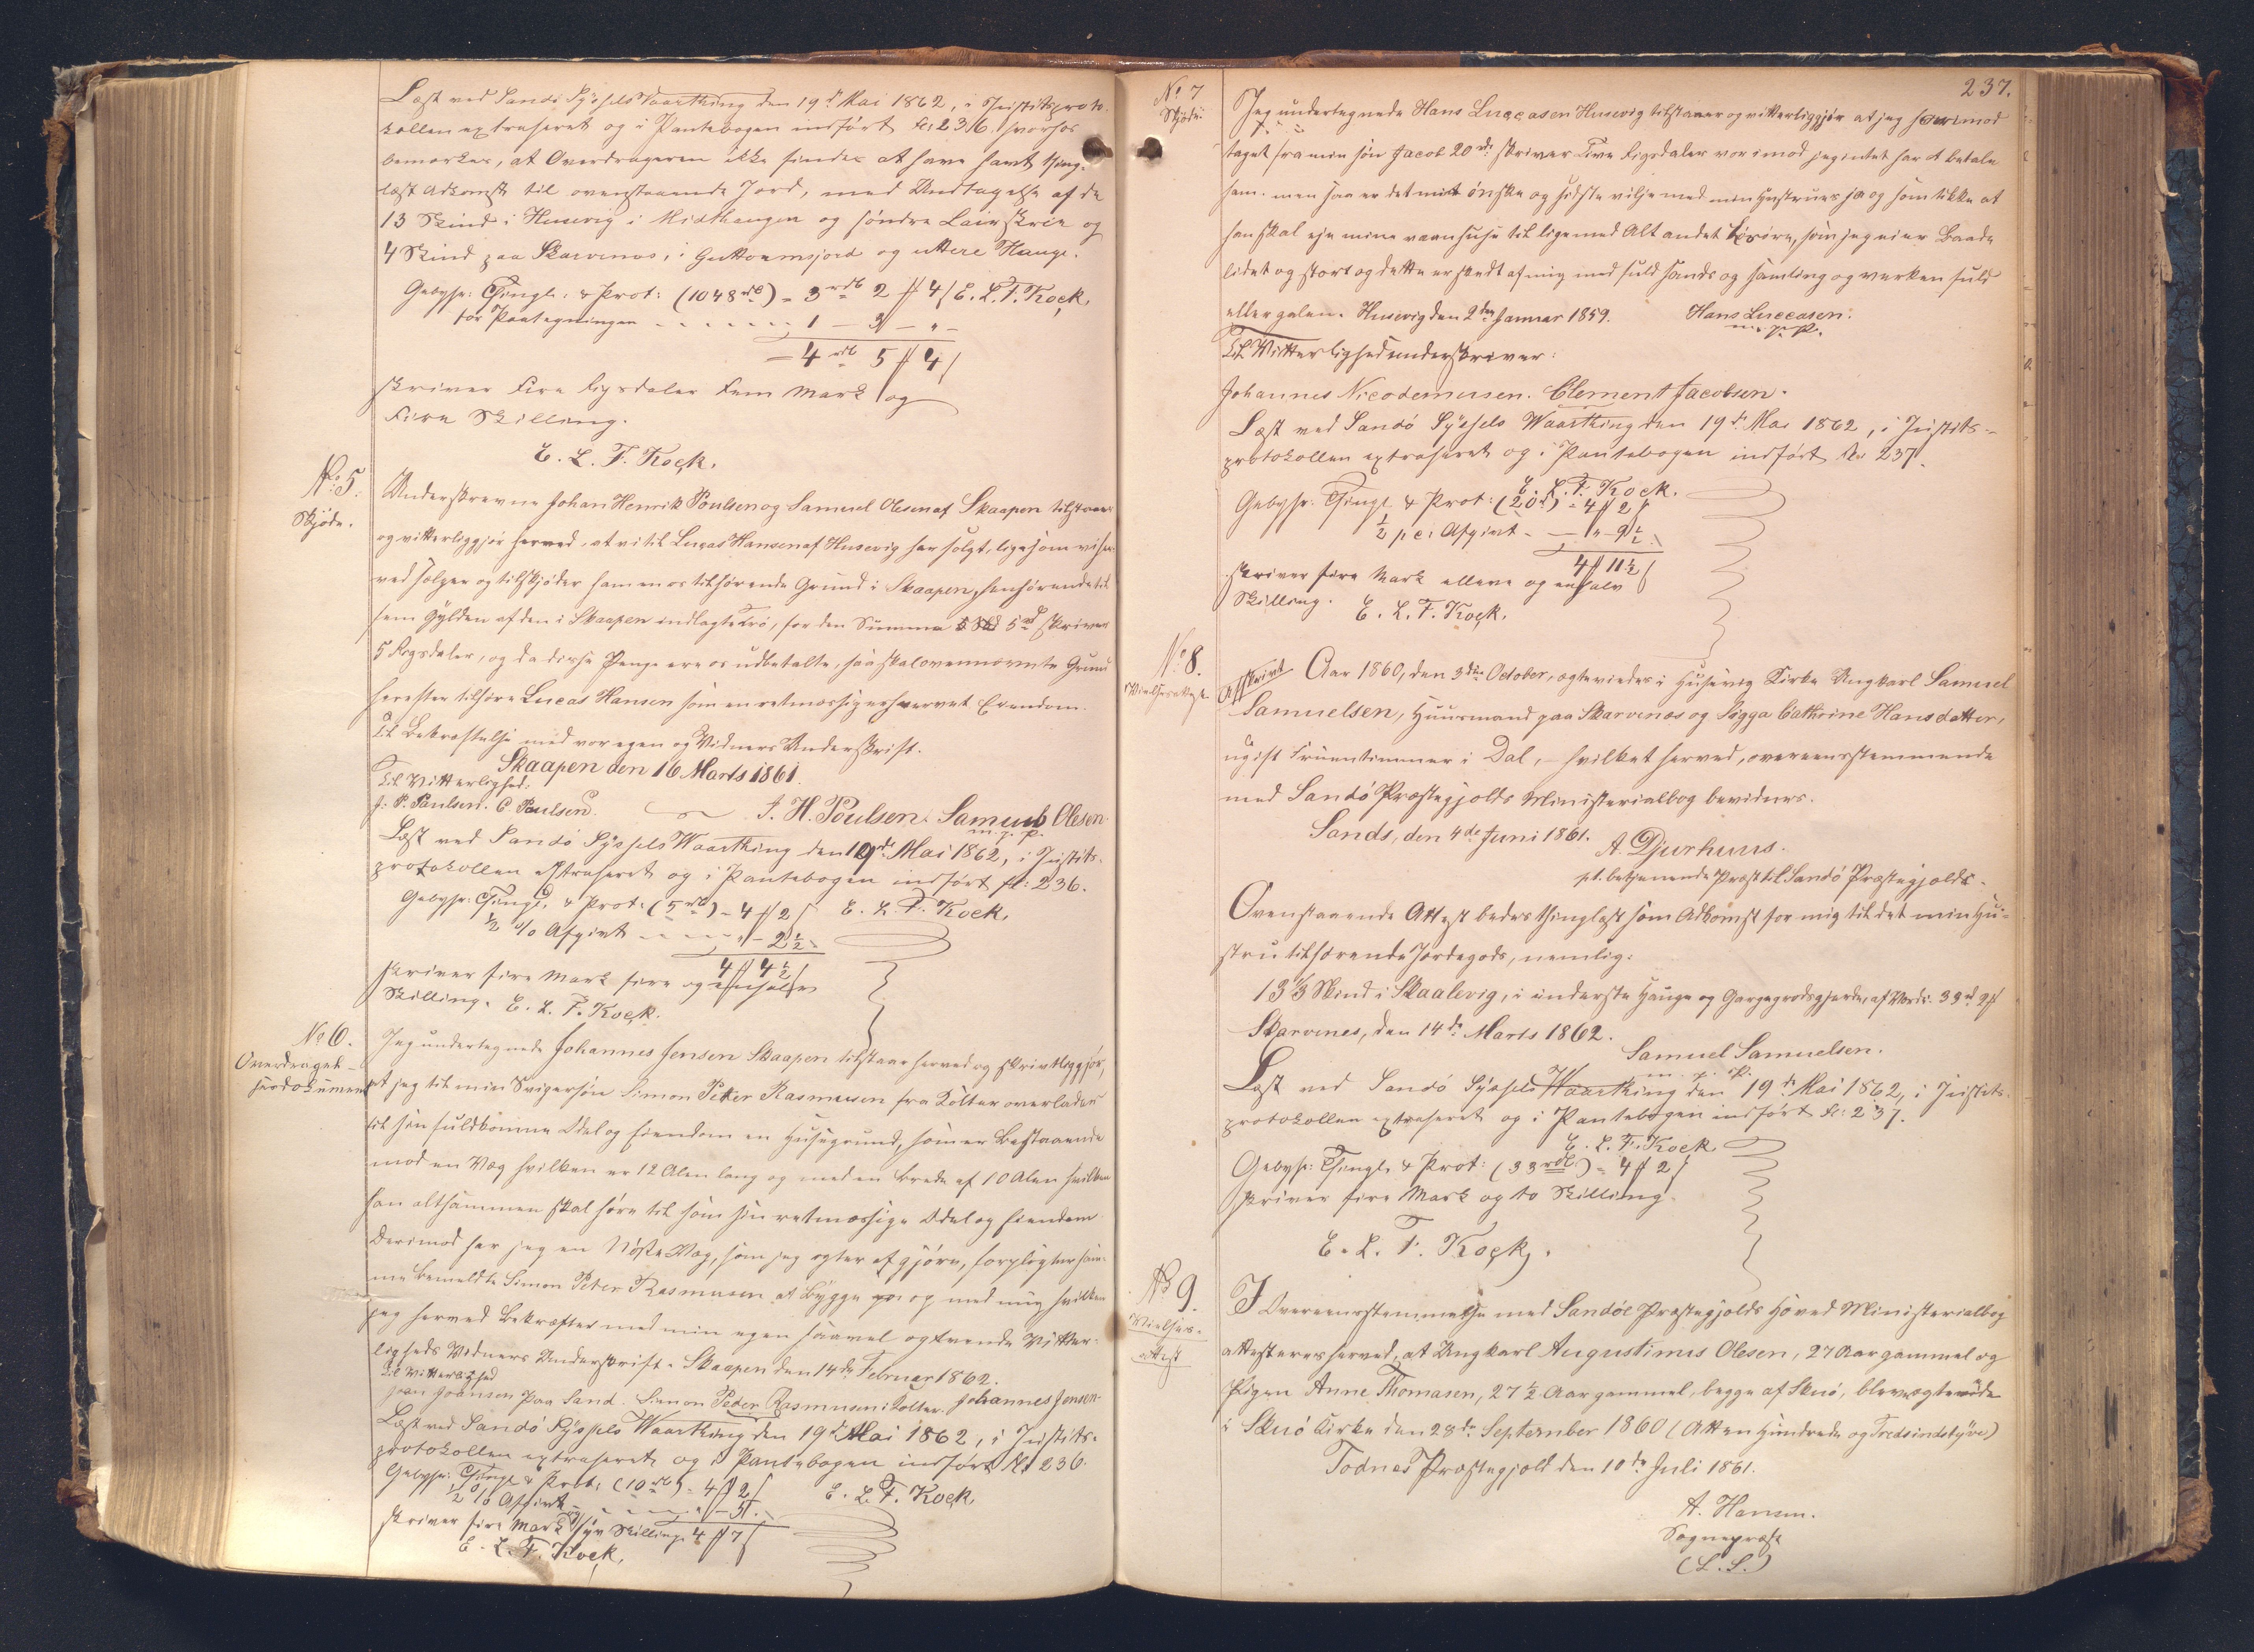 Læst ved Sandø Syssels Vaarthing den 19de Mai 1862, i Justitsproto-
kollen extraheret og i Pantebogen indført fol: 236. hvorhos
bemærkes, at Overdrageren ikke findes at have havt thing-
læst Adkomst til ovenstaaende Jord, med Undtagelse af de
13 Skind i Husevig i Midthaugen og søndre Lairskrea og
4 Skind paa Skarvenæs, i Guttormsjord og uttere Hauge.
Gebyhr: Thingl: & Prot: (1048 rd) = 3 rdl 2 # 4 ſ E. L. F. Kock.
for Paategningen - - - - - 1 — 3 — " —
= 4 rdl 5 # 4 ſ
skriver Fire Rigsdaler Fem Mark og
Fire Skilling.
E. L. F. Kock.
No. 5.
Skjøde.
Underskrevne Johan Henrik Poulsen og Samuel Olesen af Skaapen tilstaaer
og vitterliggjør herved, at vi til Lucas Hansen af Husevig har solgt, ligesom vi her-
ved sælger og tilskjøder ham en os tilhørende Grund i Skaapen, henhørende til
fem Gylden af den i Skaapen indlagte Trø, for den Summa 5 rd skriver
5 Rigsdaler, og da disse Penge ere os udbetalte, saa skal ovennævnte Grund
herefter tilhøre Lucas Hansen som en retmæssig erhvervet Eiendom.
Til Bekræftelse med vor egen og Vidners Underskrift.
Skaapen den 16 Marts 1861.
Til Vitterlighed.
J: P. Paulsen. C Poulsen. J. H. Poulsen. Samuel Olesen.
m. f. p.
Læst ved Sandø Syssels Vaarthing den 19de Mai 1862, i Justits-
protokollen extraheret og i Pantebogen indført fol: 236.
Gebyhr: Thingl. & Prot: (5 rd) = 4 # 2 ſ E. L. F. Kock.
½ % Afgivt - - - - " — 2½
4 # 4½ ſ
skriver fire Mark fire og en halv
Skilling. E. L. F. Kock.
No 6.
Overdragel-
sesdokument
Jeg undertegnede Johannes Jensen Skaapen tilstaar herved og skriftliggjør,
at jeg til min Svigersøn Simon Peter Rasmusen fra Kolter overlader
til sin fuldkomne Odel og Eiendom en Husegrund, som er bestaaende
mod en Væg hvilken er 12 Alen lang og med en Brede af 10 Alen hvilken
han altsammen skal høre til som sin retmæssige Odel og Eiendom.
Derimod har jeg en Nøste Væg, som jeg agter af gjøre, forpligter sam-
me bemeldte Simon Peter Rasmusen at bygge op med mig hvilken
jeg herved bekræfter med min egen saavel og trende Vitter-
ligheds Vidners Underskrift. Skaapen den 14de Februar 1862.
Til Vitterlighed
Joan Joensen paa Sand. Simon Peder Rasmusen i Kolter. Johannes Jensen.
Læst ved Sandø Syssels Vaarthing den 19de Mai 1862, i Justits-
protokollen extraheret og i Pantebogen indført fol 236.
Gebyhr: Thingl & Prot: (10 rd) = 4 # 2 ſ E. L. F. Kock.
½ % Afgivt - - - - " — 5
skriver fire Mark syv Skilling. 4 # 7 ſ
E. L. F. Kock.
237.
No 7
Skjøde
Jeg undertegnede Hans Lucassen Husevig tilstaaer og vitterliggjør at jeg haver imod
taget fra min søn Jacob 20 rd: skriver Tive Rigsdaler vor imod jeg intet har at betale
ham. men saa er det mit ønske og sidste vilje med min Hustrues ja og samtikke at
han skal eje mine vaanhuse til lige med Alt andet Løsøre, som jeg eier Baade
lidet og stort og dette er skedt af mig med fuld sands og samling og verken fuld
eller galen. Husevig den 2den Januar 1859. Hans Luccasen.
m. f. P.
Til Vitterlighed underskriver:
Johannes Nicodemusen. Clement Jacobsen.
Læst ved Sandø Syssels Vaarthing den 19de Mai 1862, i Justits-
protokollen extraheret og i Pantebogen indført fol 237.
E. L. F. Kock.
Gebyhr: Thingl & Prot: (20 rd) = 4 # 2 ſ
½ pct Afgivt - - " — 9½
4 # 11½ ſ
skriver fire Mark elleve og en halv
Skilling. E. L. F. Kock.
No. 8.
Vielsesattest.
Afskrivt
Aar 1860, den 3die October, ægteviedes i Husevig Kirke Ungkarl Samuel
Samuelsen, Huusmand paa Skarvenæs og Sigga Cathrine Hansdatter,
ugift Fruentimmer i Dal, — hvilket herved, overeensstemmende
med Sandø Præstegjelds Ministerialbog bevidnes.
Sands, den 4de Juni 1861.
A. Djurhuus.
pt. betjenende Præst til Sandø Præstegjeld.
Ovenstaaende Attest bedes thinglæst som Adkomst for mig til det min Hu-
stru tilhørende Jordegods, nemlig:
13⅓ Skind i Skaalevig, i inderste Hauge og Gargagrodsgjerde, af Værdi: 33 rd 2 #
Skarvenes, den 14de Marts 1862.
Samuel Samuelsen.
m. f. P.
Læst ved Sandø Syssels Vaarthing den 19de Mai 1862, i Justits-
protokollen extraheret og i Pantebogen indført fol: 237.
E. L. F. Kock
Gebyhr: Thingl. & Prot: (33 rdl) = 4 # 2 ſ
skriver fire Mark og to Skilling.
E. L. F. Kock.
No 9.
Vielses-
attest
I Overeensstemmelse med Sandøe Præstegjelds Hoved Ministerialbog
attesteres herved, at Ungkarl Augustinus Olesen, 27 Aar gammel og
Pigen Anne Thomasen, 27½ Aar gammel, begge af Skuø, bleve ægteviede
i Skuø Kirke den 28de September 1860 (Atten Hundrede og Tredsindstyve)
Todnes Præstegjeld den 10de Juli 1861.
A. Hansen.
Sognepræst
(L. S.)